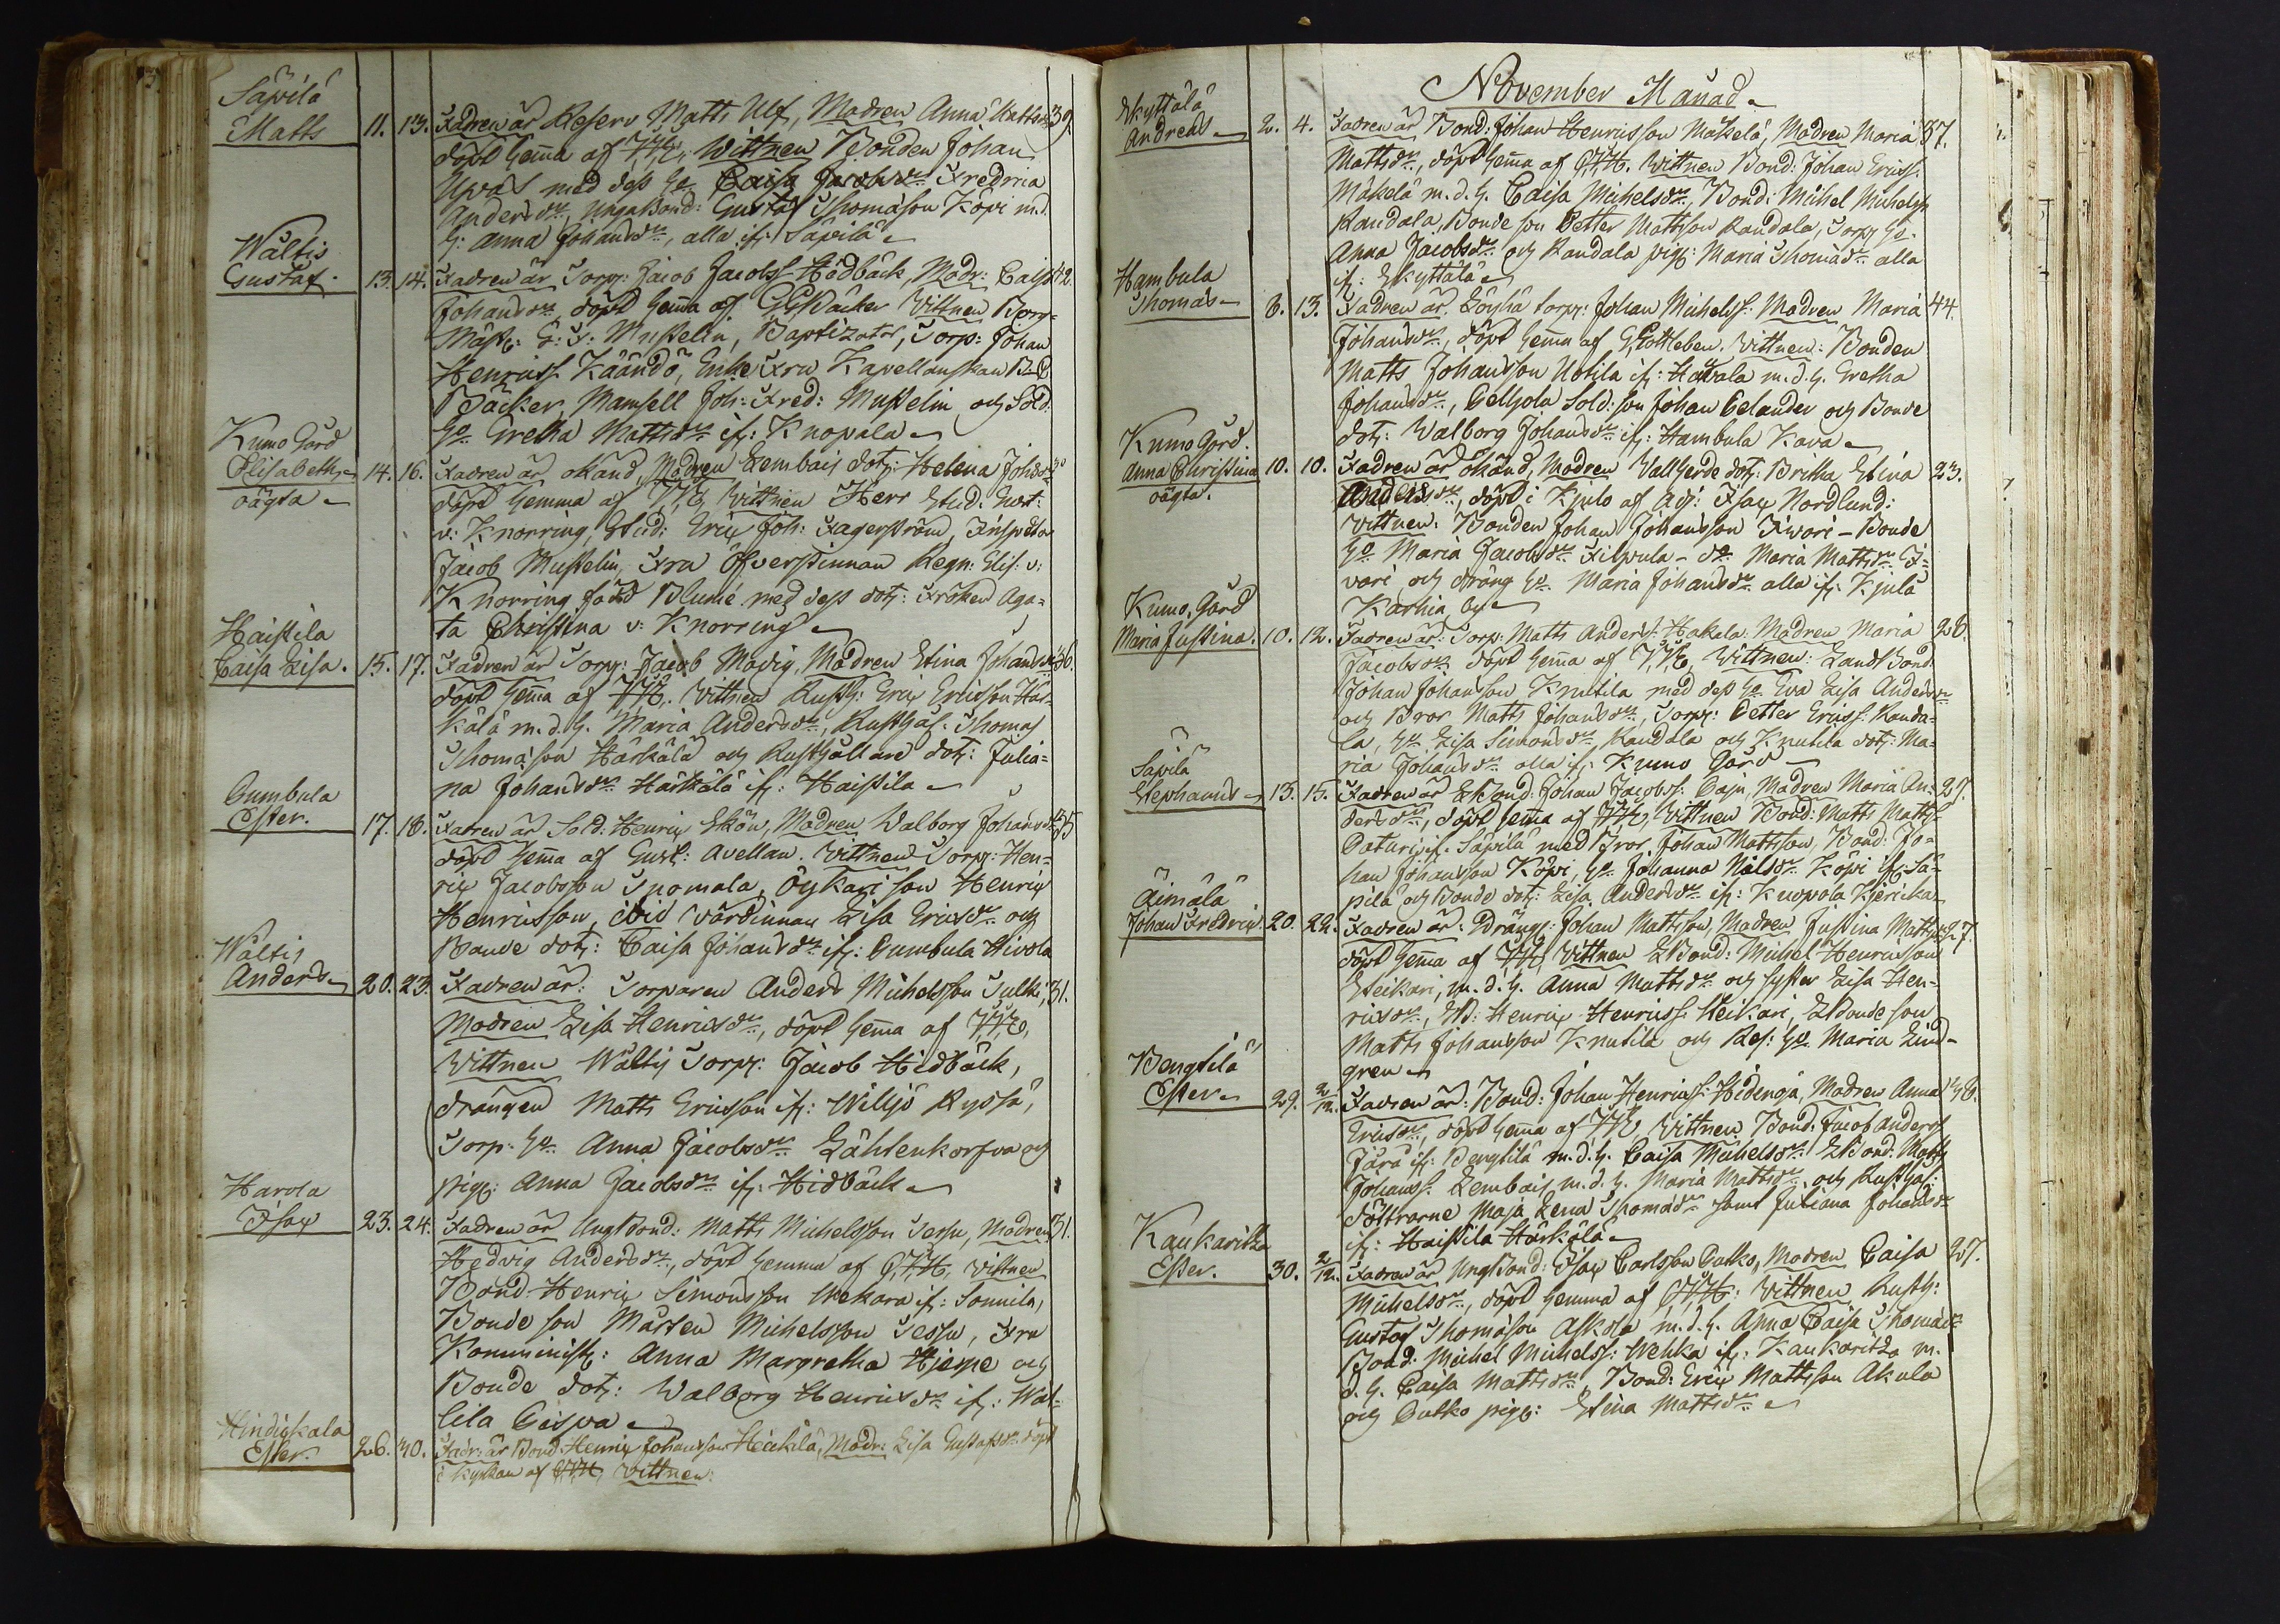 Säpilä
Matts 11. 13. Fadren är Reserv Matts Ulf, Modren Anna Mattsdr 39.
döpt hema af Wittnen Bonden Johan
Upas med dess ho Caisa Jacobsdr Fredrica
Andersdr, Gustaf Thomasson Köpi m.d.
h. Anna Johansdr, alla ifr: Säpilä
Wältis
Gustaf. 13. 14. Fadren är Torp: Jacob Jacobss. Hidbäck, Modr: Caisa 42.
Johansdr, döpt hema af Wittnen Borg-
Mäst: Mustelin, Baptizator, Torp: Johan
Henricss. Käändö, Enke Fru Kapellanskan
Bäcker, Mamsell Joh: Fred: Mustelin och Sold:
ho Gretha Mattsdr ifr: Knopala
Kumo Gård
Elisabeth 14. 16. Fadren är okänd, Modren Lembais dotr: Helena Johsdr
oägta döpt hemma af Wittnen Herr Stud:
v: Knorring, Stud: Eric Joh: Fagerström, Inspector
Jacob Mustelin, Fru Öfverstinnan Regn: Elis: v:
Knorring född Blumé med dess dotr: Fröken Aga-
ta Christina v: Knorring
Haistila
Caisa Lisa. 15. 17. Fadren är Torp: Jacob Modig, Modren Stina Johansdr 36.
döpt hema af Wittnen Rusth: Eric Ericsson Här-
kälä m.d.h. Maria Andersdr, Rusthås. Thomas
Thomasson Härkälä och Rusthållare dotr: Julia-
na Johansdr Härkälä ifr: Haistila
Cumbula
Ester. 17. 18. Fadren är Sold: Henric Skön, Modren Walborg Johansdr 35
döpt hema af Gust: Avellan. Wittnen Torp: Hen-
ric Jacobsson Tuomala, Öykari son Henric
Henricsson, ibid värdinnan Lisa Ericsdr och
Bonde dotr: Caisa Johansdr ifr: Cumbula Hivola
Wältis
Anders 20. 23. Fadren är: Torparen Anders Michelsson Sulki, 31.
Modren Lisa Henricsdr, döpt hema af
Wittnen Wältis Torp: Jacob Hidbäck,
drängen Matts Ericsson ifr: Wilijo Ryssä,
Torp: ho Anna Jacobsdr Lähtenkorfva och
pig: Anna Jacobsdr ifr: Hidbäck
Harola
Isac 23. 24. Fadren är UngBond: Matts Michelsson Tessu, Modren 31.
Hedvig Andersdr, döpt hemma af Wittnen
Bond Henric Simonsson Wekara ifr: Sonnila,
Bonde son Mårten Michelsson Tessu, Fru
Komminist: Anna Margretha Hjerpe och
Bonde dotr: Walborg Henricsdr ifr: Wät-
lila Caispa
Hindiskala
Ester. 26. 30. Fadr: är Bond: Henric Johansson Heickilä, Modr: Lisa Gustafsdr döpt
i kyrkan af Wittnen:
November Månad
Skyttälä
Andreas 2. 4. Fadren är Bond: Johan Henricsson Mäkelä, Modren Maria 37.
Mattsdr, döpt hema af Wittnen Bond: Johan Ericss.
Mäkelä m.d.h. Caisa Michelsdr, Bond: Michel Michelss
Randala, Bonde son Petter Mattsson Randala, Torp: ho
Anna Jacobsdr och Randala pig: Maria Thomasdr alla
ifr: Skyttälä
Hambula
Thomas 8. 13. Fadren är Löyhä torp: Johan Michelss. Modren Maria 44.
Johansdr, döpt hema af G. Gottleben. Wittnen: Bonden
Matts Johansson Uotila ifr: m.d.h. Gretha
Johansdr, Sold: son Johan Celander och Bonde
dotr: Walborg Johansdr ifr: Hambula Kara
Kumo Gård.
Anna Christina 10. 10. Fadren är okänd, Modren Dotr: Britha Stina 23.
oägta. Andersdr, döpt i Kjulo af Adj: Isac Nordlund:
Wittnen: Bonden Johan Johansson Iwari - Bonde
ho Maria Jacobsdr Filpula - do Maria Mattsdr I-
vari och dräng ho Maria Johansdr alla ifr: Kjulo
Karhia by
Kumo Gård
Maria Justina. 10. 12. Fadren är: Torp: Matts Anderss. Hakala Modren Maria 28.
Jacobsdr döpt hema af Wittnen: LandtBond:
Johan Johansson Knutila med dess ho Eva Lisa Andersdr
och Bror Matts Johansdr, Torp: Petter Ericss: Randa-
la, ho Lisa Simonsdr Randala och Knutila dotr: Ma-
ria Johansdr alla ifr: Kumo Gård
Säpilä
Stephanus 13. 15. Fadren är LBond: Johan Jacobss: Caju, Modren Maria An- 29.
dersdr, döpt hema af Wittnen Bond: Matts Mattss
Paturi ifr. Säpilä med Bror Johan Mattsson, Bond: Jo-
han Johansson Köpi, ho Johanna Nilsdr Köpi ifr: Sä-
pilä och Bonde dotr: Lisa Andersdr ifr: Knopala
Äimälä
Johan Fredric 20. 22. Fadren är: Dräng: Johan Mattsson, Modren Justina Mattsdr 27.
döpt hema af Wittnen LBond: Michel Henricsson
Steikari, m.d.h. Anna Mattsdr och syster Lisa Hen-
ricsdr, Henric Henricss. Steikari, LBonde son
Matts Johansson Knutila och Res: ho Maria Lind-
gren
Bengtilä
Ester 29. 2/12. Fadren är: Bond: Johan Henricss. Hidenoja, Modren Anna 38.
Ericsdr, döpt hema af Wittnen Bond: Jacob Anderss
Järä ifr: Bengtilä m.d.h. Caisa Michelsdr LBond: Matts
Johanss. Lembais m.d.h. Maria Mattsdr och Rusthas:
döttrarne Maja Lena Thomasdr samt Juliana Johansdr
ifr: Haistila Härkälä
Kaukaritza
Ester. 30. 2/12. Fadren är UngBond: Isac Carlsson Palko, Modren Caisa 27.
Michelsdr, döpt hemma af Wittnen Rusth:
Gustaf Thomasson Askola m.d.h. Anna Caisa Thomasdr
Bond: Michel Michelss: Wehka ifr: Kaukaritza m.
d.h. Caisa Mattsdr, Bond: Eric Mattsson Akula
och Palko pig: Stina Mattsdr